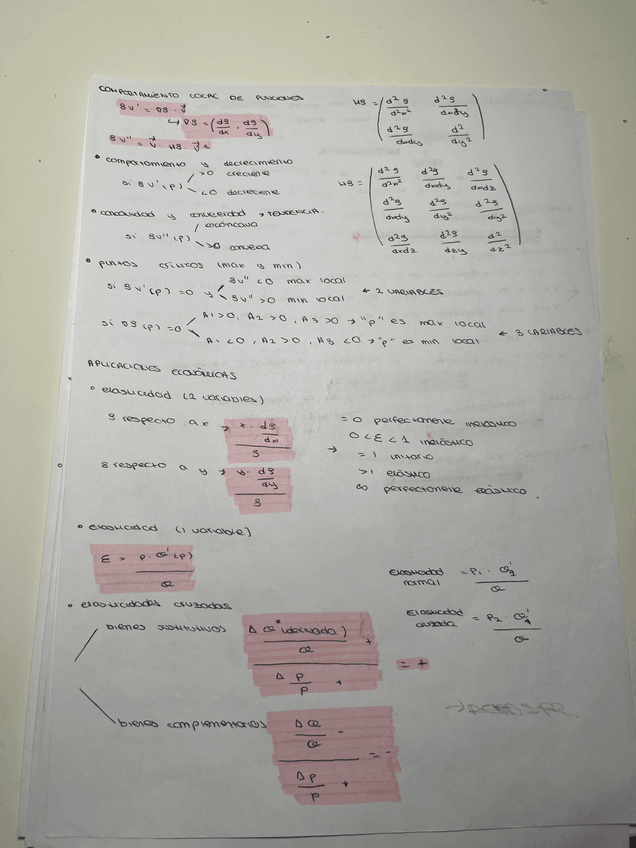 COMPORTAMIENTO LOCAL DE FUNCIONES
gv' = ∇g · v⃗
↳ ∇g = (dg/dx , dg/dy)
gv'' = v⃗ · Hg · v⃗ t
Hg = ( d²g/d²x² d²g/dxdy
d²g/dxdy d²/dy² )
• comportamiento y decrecimiento
si gv'(p) >0 creciente
<0 decreciente
Hg = ( d²g/d²x² d²g/dxdy d²g/dxdz
d²g/dxdy d²g/dy² d²g/dyz
d²g/dxdz d²g/dzy d²/dz² )
• concavidad y convexidad → TENDENCIA.
si gv''(p)
>0 convexa
• puntos críticos (max y min)
si gv'(p) =0 y gv'' <0 max local
gv'' >0 min local ← 2 VARIABLES
si ∇g(p) =0 A1>0, A2>0, A3>0 → "p" es max local
A1<0, A2>0, A3<0 → "p" es min local ← 3 VARIABLES
APLICACIONES ECONÓMICAS
• elasticidad (2 variables)
g respecto a x → x · dg/dx / g
• g respecto a y → y · dg/dy / g
→ = 0 perfectamente inelástico
0 < E < 1 inelástico
= 1 unitario
>1 elástico
∞ perfectamente elástico.
• elasticidad (1 variable)
E = p · Q'(p) / Q
Elasticidad normal = P1 · Q'1 / Q
• elasticidades cruzadas
Elasticidad cruzada = P2 · Q'1 / Q
bienes sustitutivos Δ Q (derivada) / Q + / Δ P / P + = +
bienes complementarios Δ Q / Q - / Δ P / P + = -